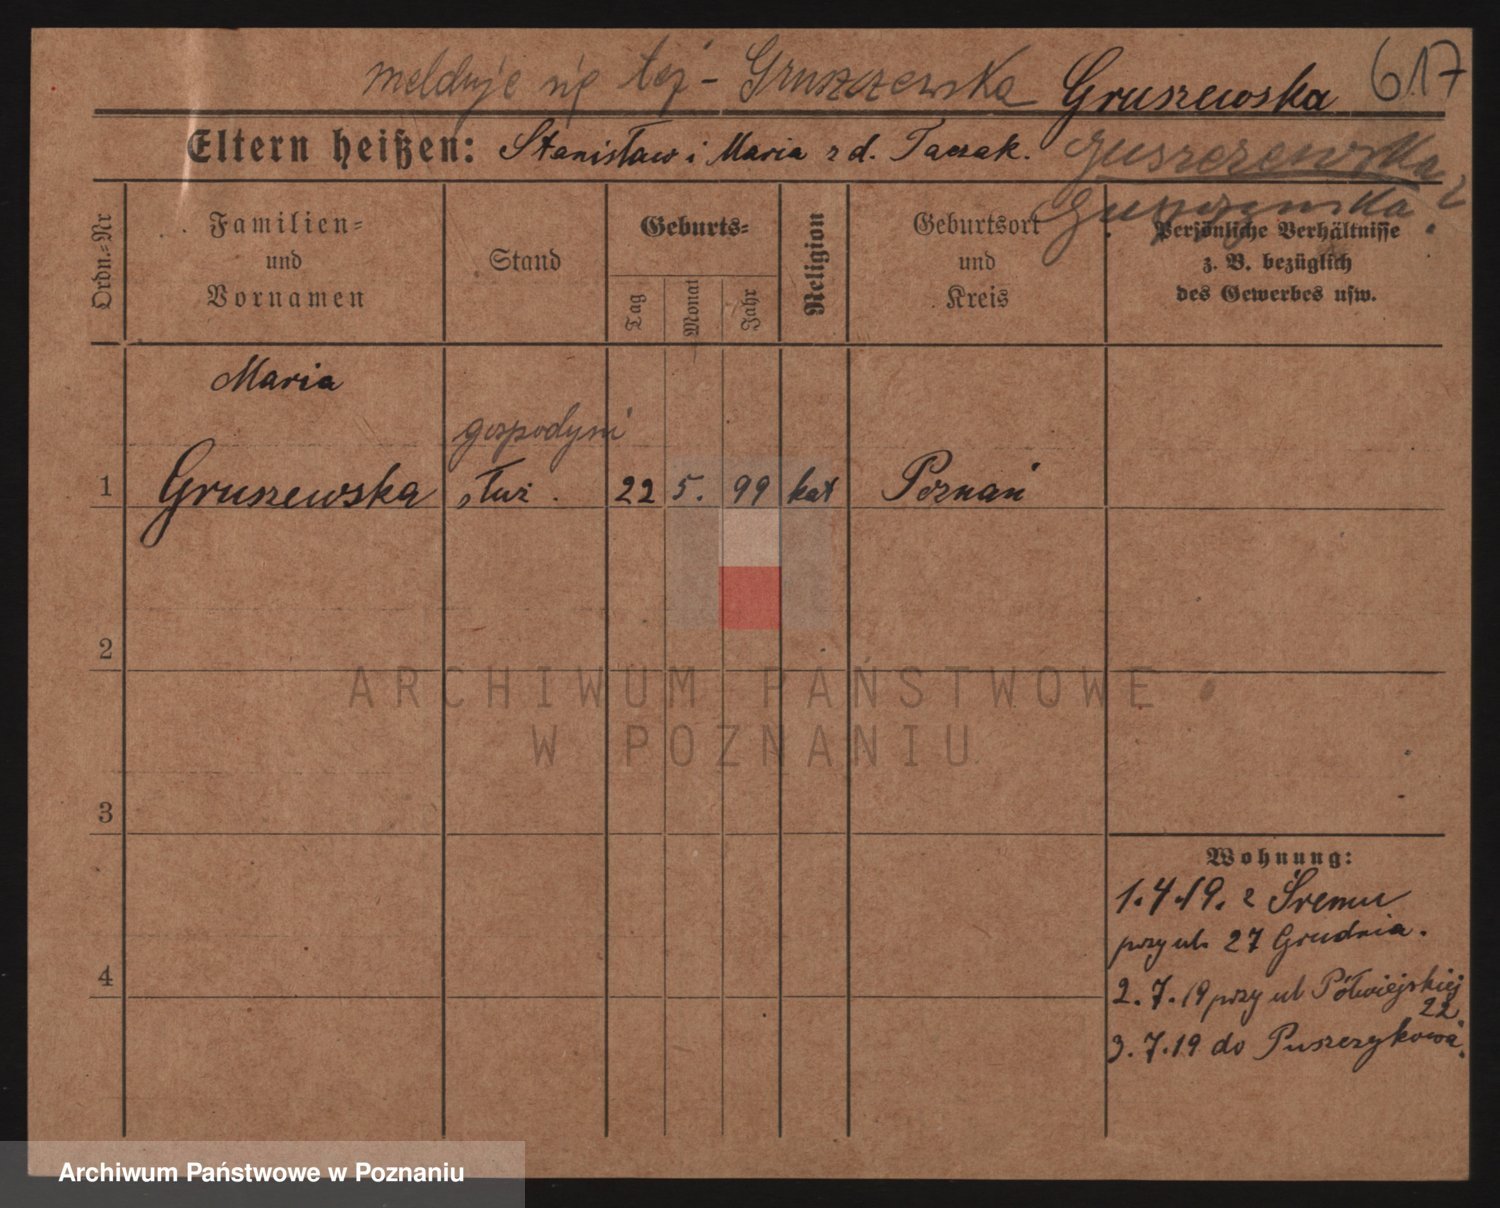 melduje się też - Gruszczewska Gruszewska 617
Eltern heißen: Stanisław i Maria z d. Taczak. Guszczewska
Ordn.-Nr Familien- und Vornamen Stand Geburts- Tag Monat Jahr Religion Geburtsort und Kreis Persönliche Verhältnisse z. B. bezüglich des Gewerbes usw.
Maria
gospodyni
1 Gruszewska służ. 22 5. 99 kat Poznań
2
3
4
Wohnung:
1.4.19. z Śremu
przy ul. 27 Grudnia.
2.7.19 przy ul Półwiejskiej
22.
3.7.19 do Puszczykowa.
ARCHIWUM PAŃSTWOWE
W POZNANIU
Archiwum Państwowe w Poznaniu